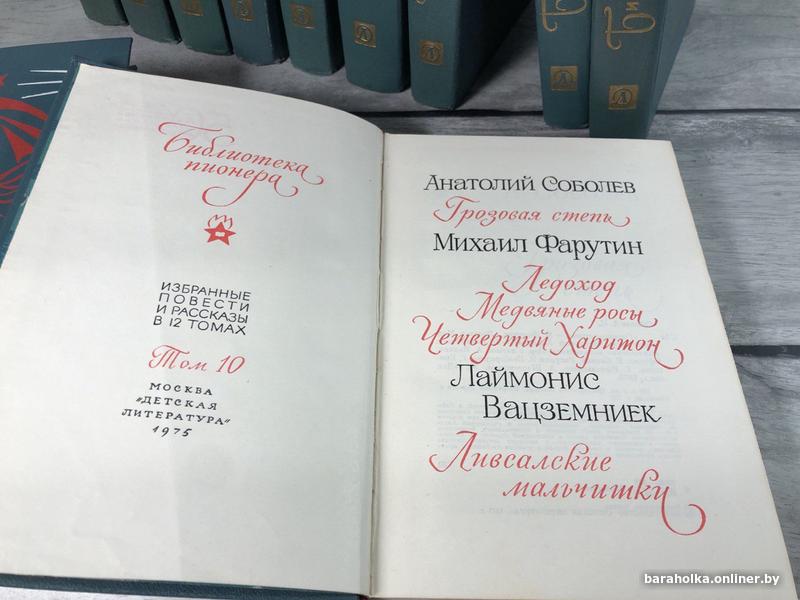 Библиотека
пионера
ИЗБРАННЫЕ
ПОВЕСТИ
И РАССКАЗЫ
В 12 ТОМАХ
Том 10
МОСКВА
„ДЕТСКАЯ
ЛИТЕРАТУРА"
1975
Анатолий Соболев
Грозовая степь
Михаил Фарутин
Ледоход
Медвяные росы
Четвертый Харитон
Лаймонис
Вацземниек
Ливсалские
мальчишки
baraholka.onliner.by